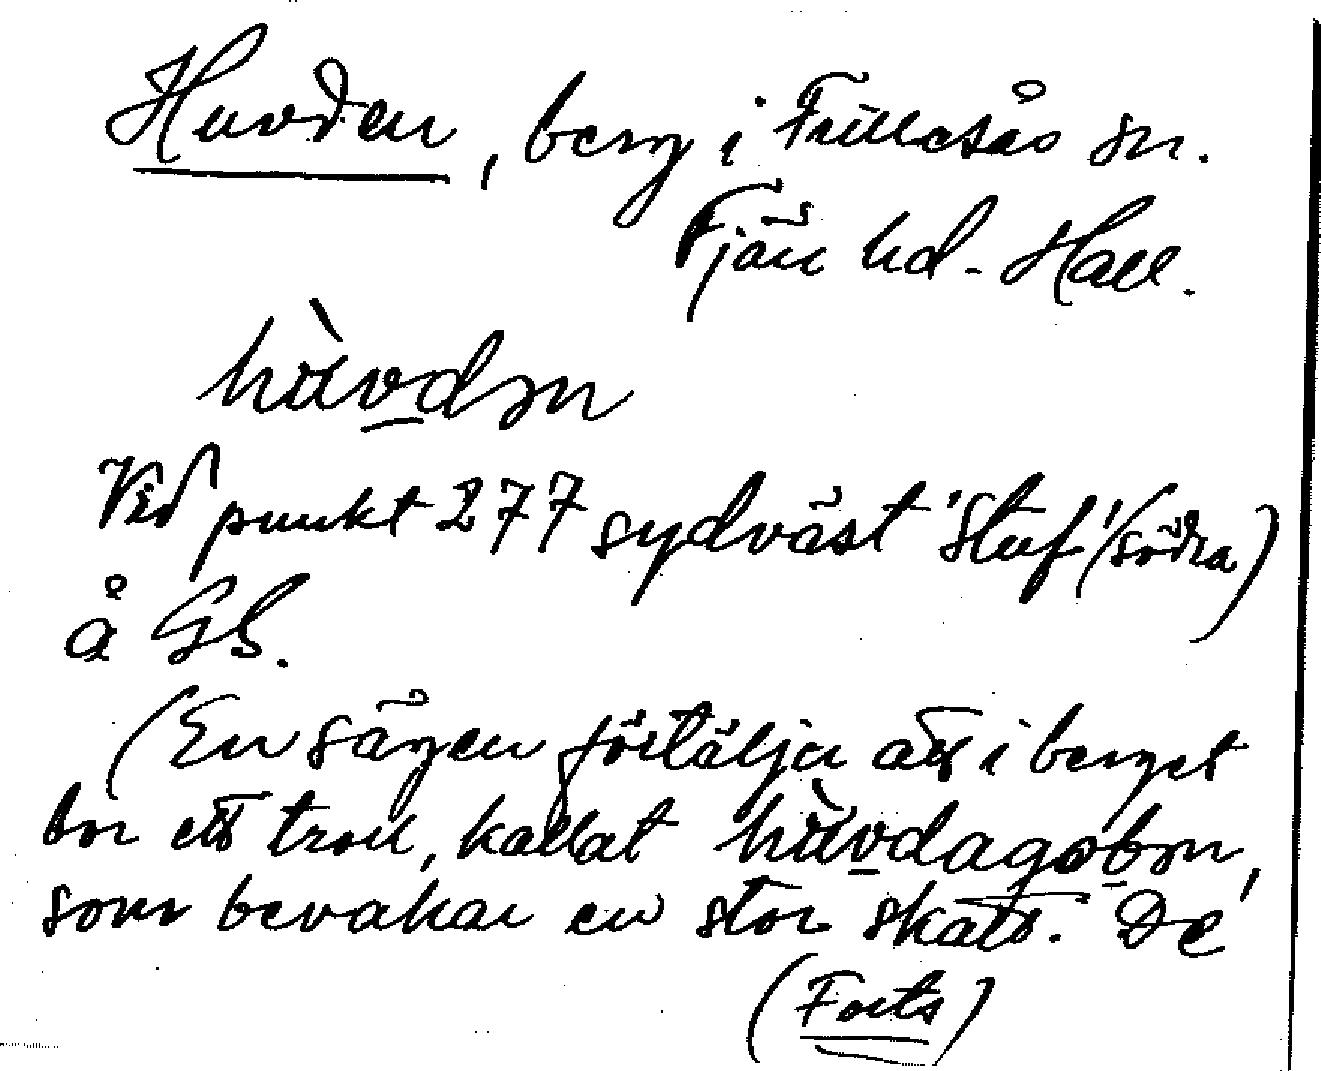 Huvden, berg i Frillesås sn.
Fjäre hd. Hall.
hùvdən
Vid punkt 277 sydväst "Stuf" (södra)
å GS.
(En sägen förtäljer att i berget
bor ett troll, kallat hùvdagobən,
som bevakar en stor skatt. De
(Forts)